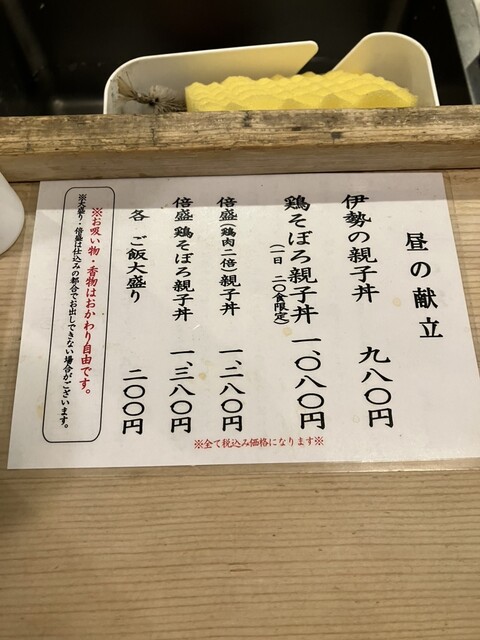 昼の献立
伊勢の親子丼 九八〇円
鶏そぼろ親子丼 一、〇八〇円
(一日 二〇食限定)
倍盛(鶏肉二倍)親子丼 一、二八〇円
倍盛 鶏そぼろ親子丼 一、三八〇円
各 ご飯大盛り 二〇〇円
※お吸い物・香物はおかわり自由です。
※大盛り・倍盛は仕込みの都合でお出しできない場合がございます。
※全て税込み価格になります※